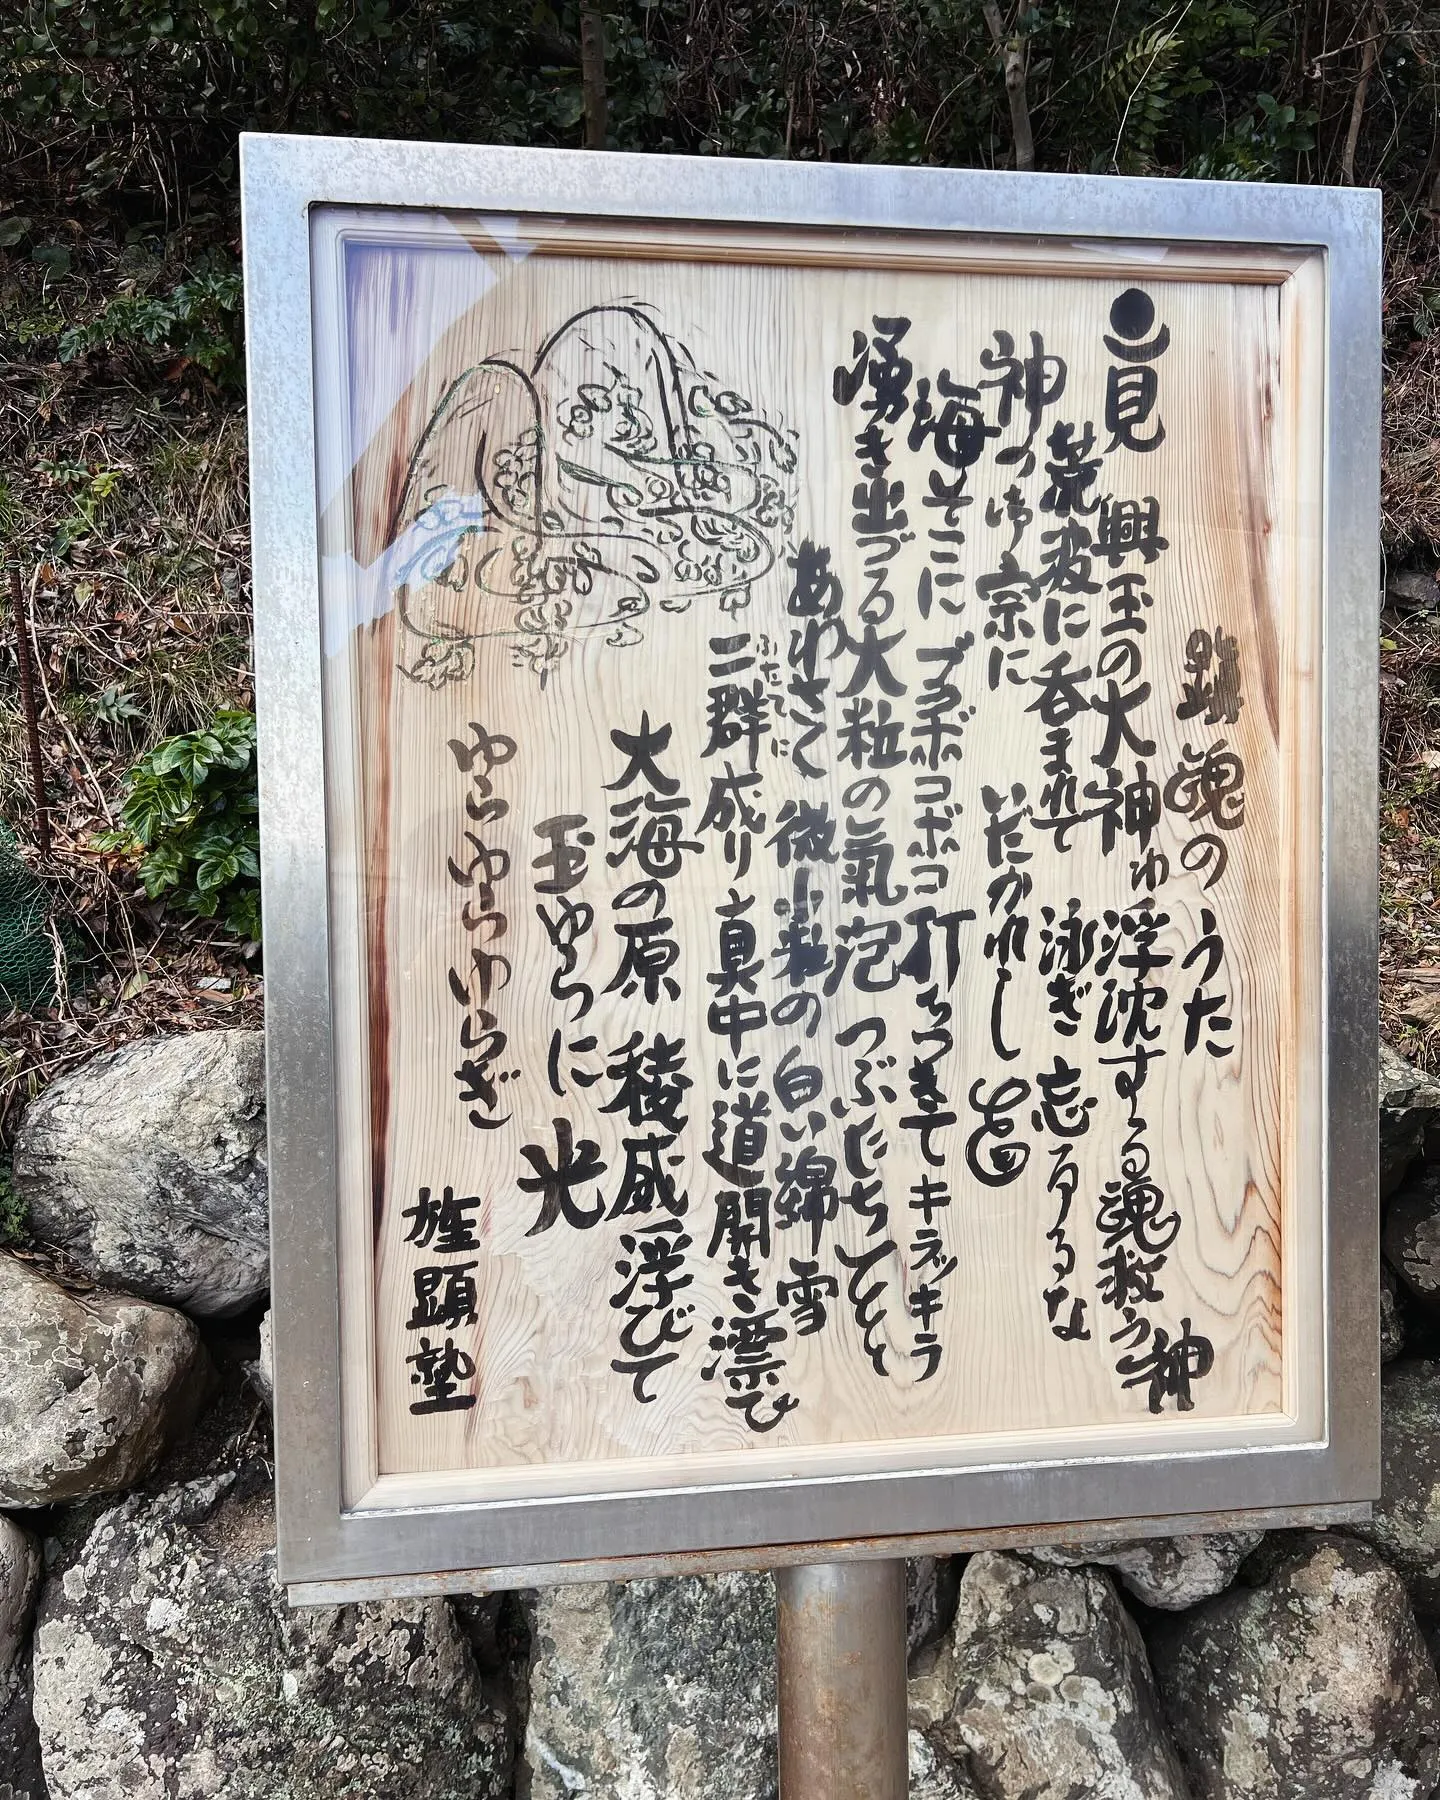 魂のうた
見 興玉の大神ゆ 浮沈する魂救う神
荒波に呑まれて 泳ぎ忘るるな
神つゆ宗に いだかれし
海そこに ブクボコボコ 打ちつきて キラッキラ
湧き出づる大粒の氣泡 つぶだちしてと
あわさく 微粒の白い綿雪
ふたてに
二群成り 真中に道開き漂ひ
大海の原 稜威浮びて
玉ゆらに 光
ゆらゆらゆらぎ
顕塾